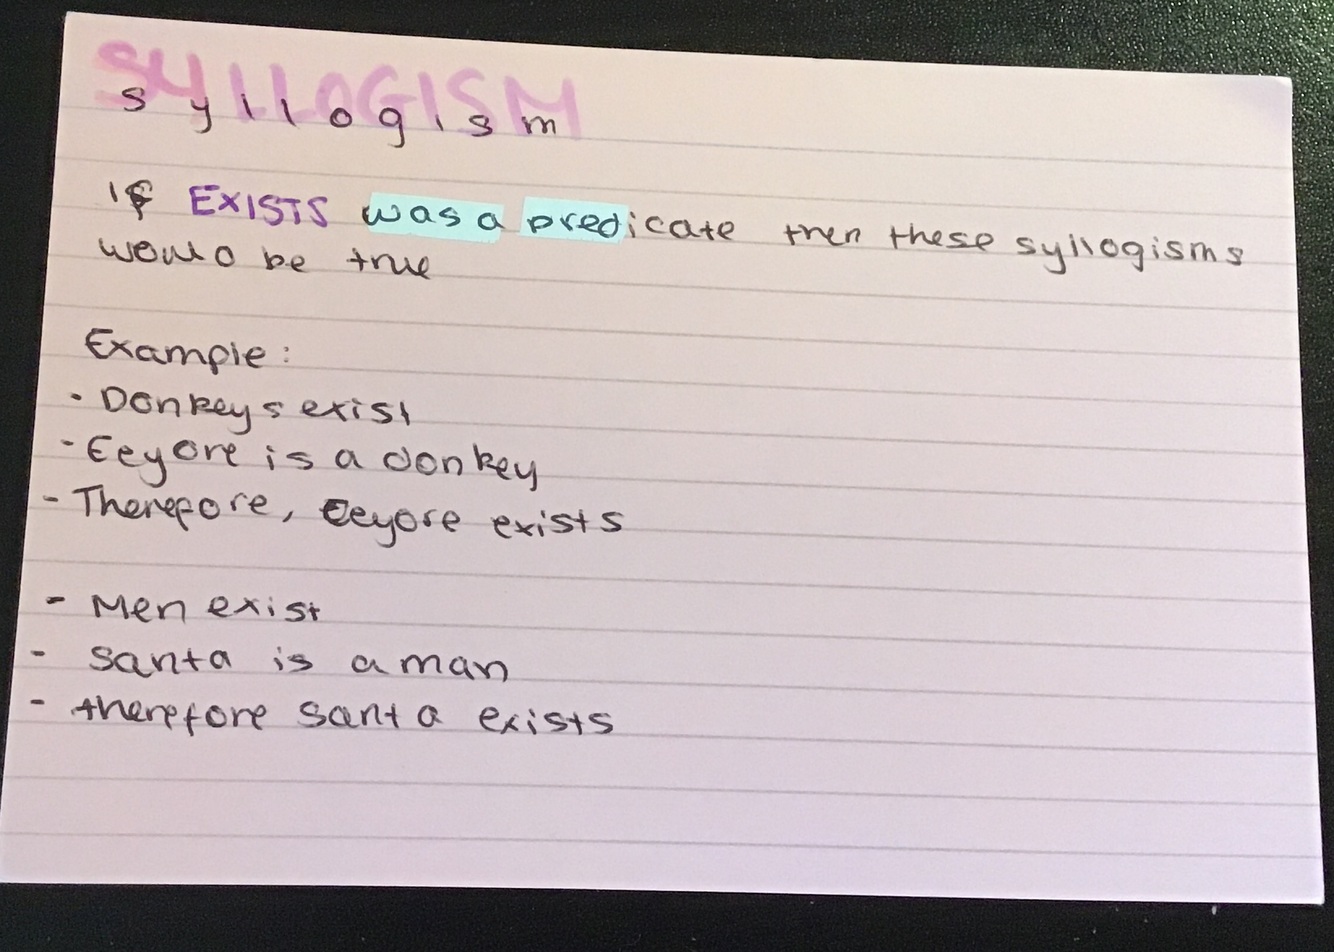 SYLLOGISM
syllogism
If EXISTS was a predicate then these syllogisms
would be true
Example:
· Donkeys exist
- Eeyore is a donkey
- Therefore, Eeyore exists
- Men exist
- Santa is a man
- therefore Santa exists